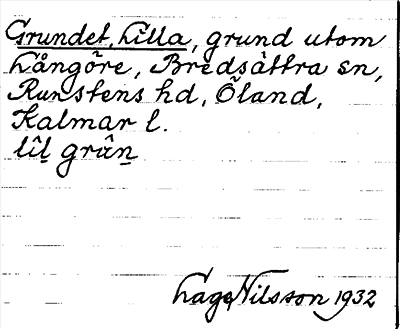 Grundet, Lilla, grund utom
Långöre, Bredsättra sn,
Runstens hd, Öland,
Kalmar l.
lîl̲ grûn̲
Lage Nilsson 1932